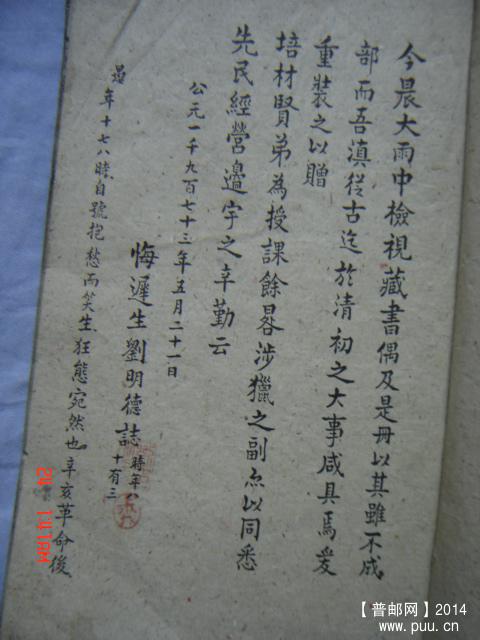 今晨大雨中檢視藏書偶及是冊以其雖不成
部而吾滇從古迄於清初之大事咸具焉爰
重裝之以贈
培材賢弟為授課餘畧涉獵之副亦以同悉
先民經營邊宇之辛勤云
公元一千九百七十三年五月二十一日
悔遲生劉明德誌時年八十有三
年十七八時自號抱愁而笑生狂態宛然也辛亥革命後
【普邮网】2014
www.puu.cn